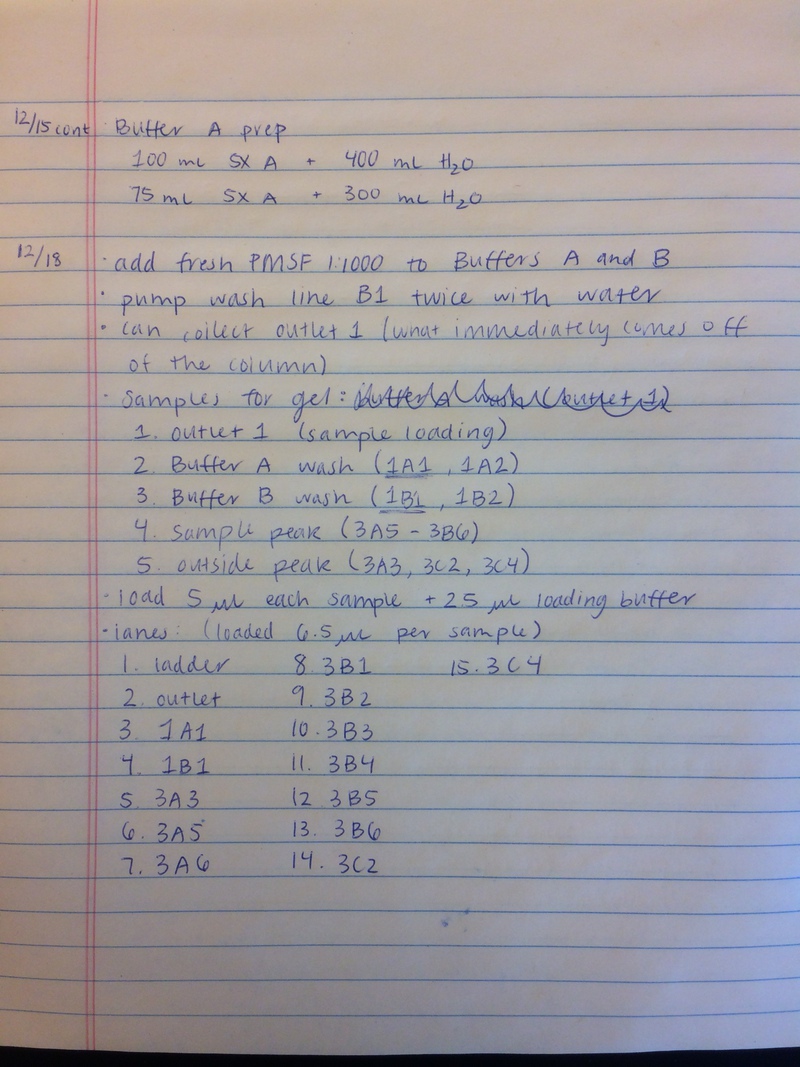 12/15 cont Buffer A prep
100 mL 5X A + 400 mL H₂O
75 mL 5X A + 300 mL H₂O
12/18 · add fresh PMSF 1:1000 to Buffers A and B
· pump wash line B1 twice with water
· can collect outlet 1 (what immediately comes off
of the column)
· samples for gel:
1. outlet 1 (sample loading)
2. Buffer A wash (1A1, 1A2)
3. Buffer B wash (1B1, 1B2)
4. sample peak (3A5 - 3B6)
5. outside peak (3A3, 3C2, 3C4)
· load 5 µL each sample + 25 µL loading buffer
· lanes: (loaded 6.5 µL per sample)
1. ladder 8. 3B1 15. 3C4
2. outlet 9. 3B2
3. 1A1 10. 3B3
4. 1B1 11. 3B4
5. 3A3 12 3B5
6. 3A5 13. 3B6
7. 3A6 14. 3C2